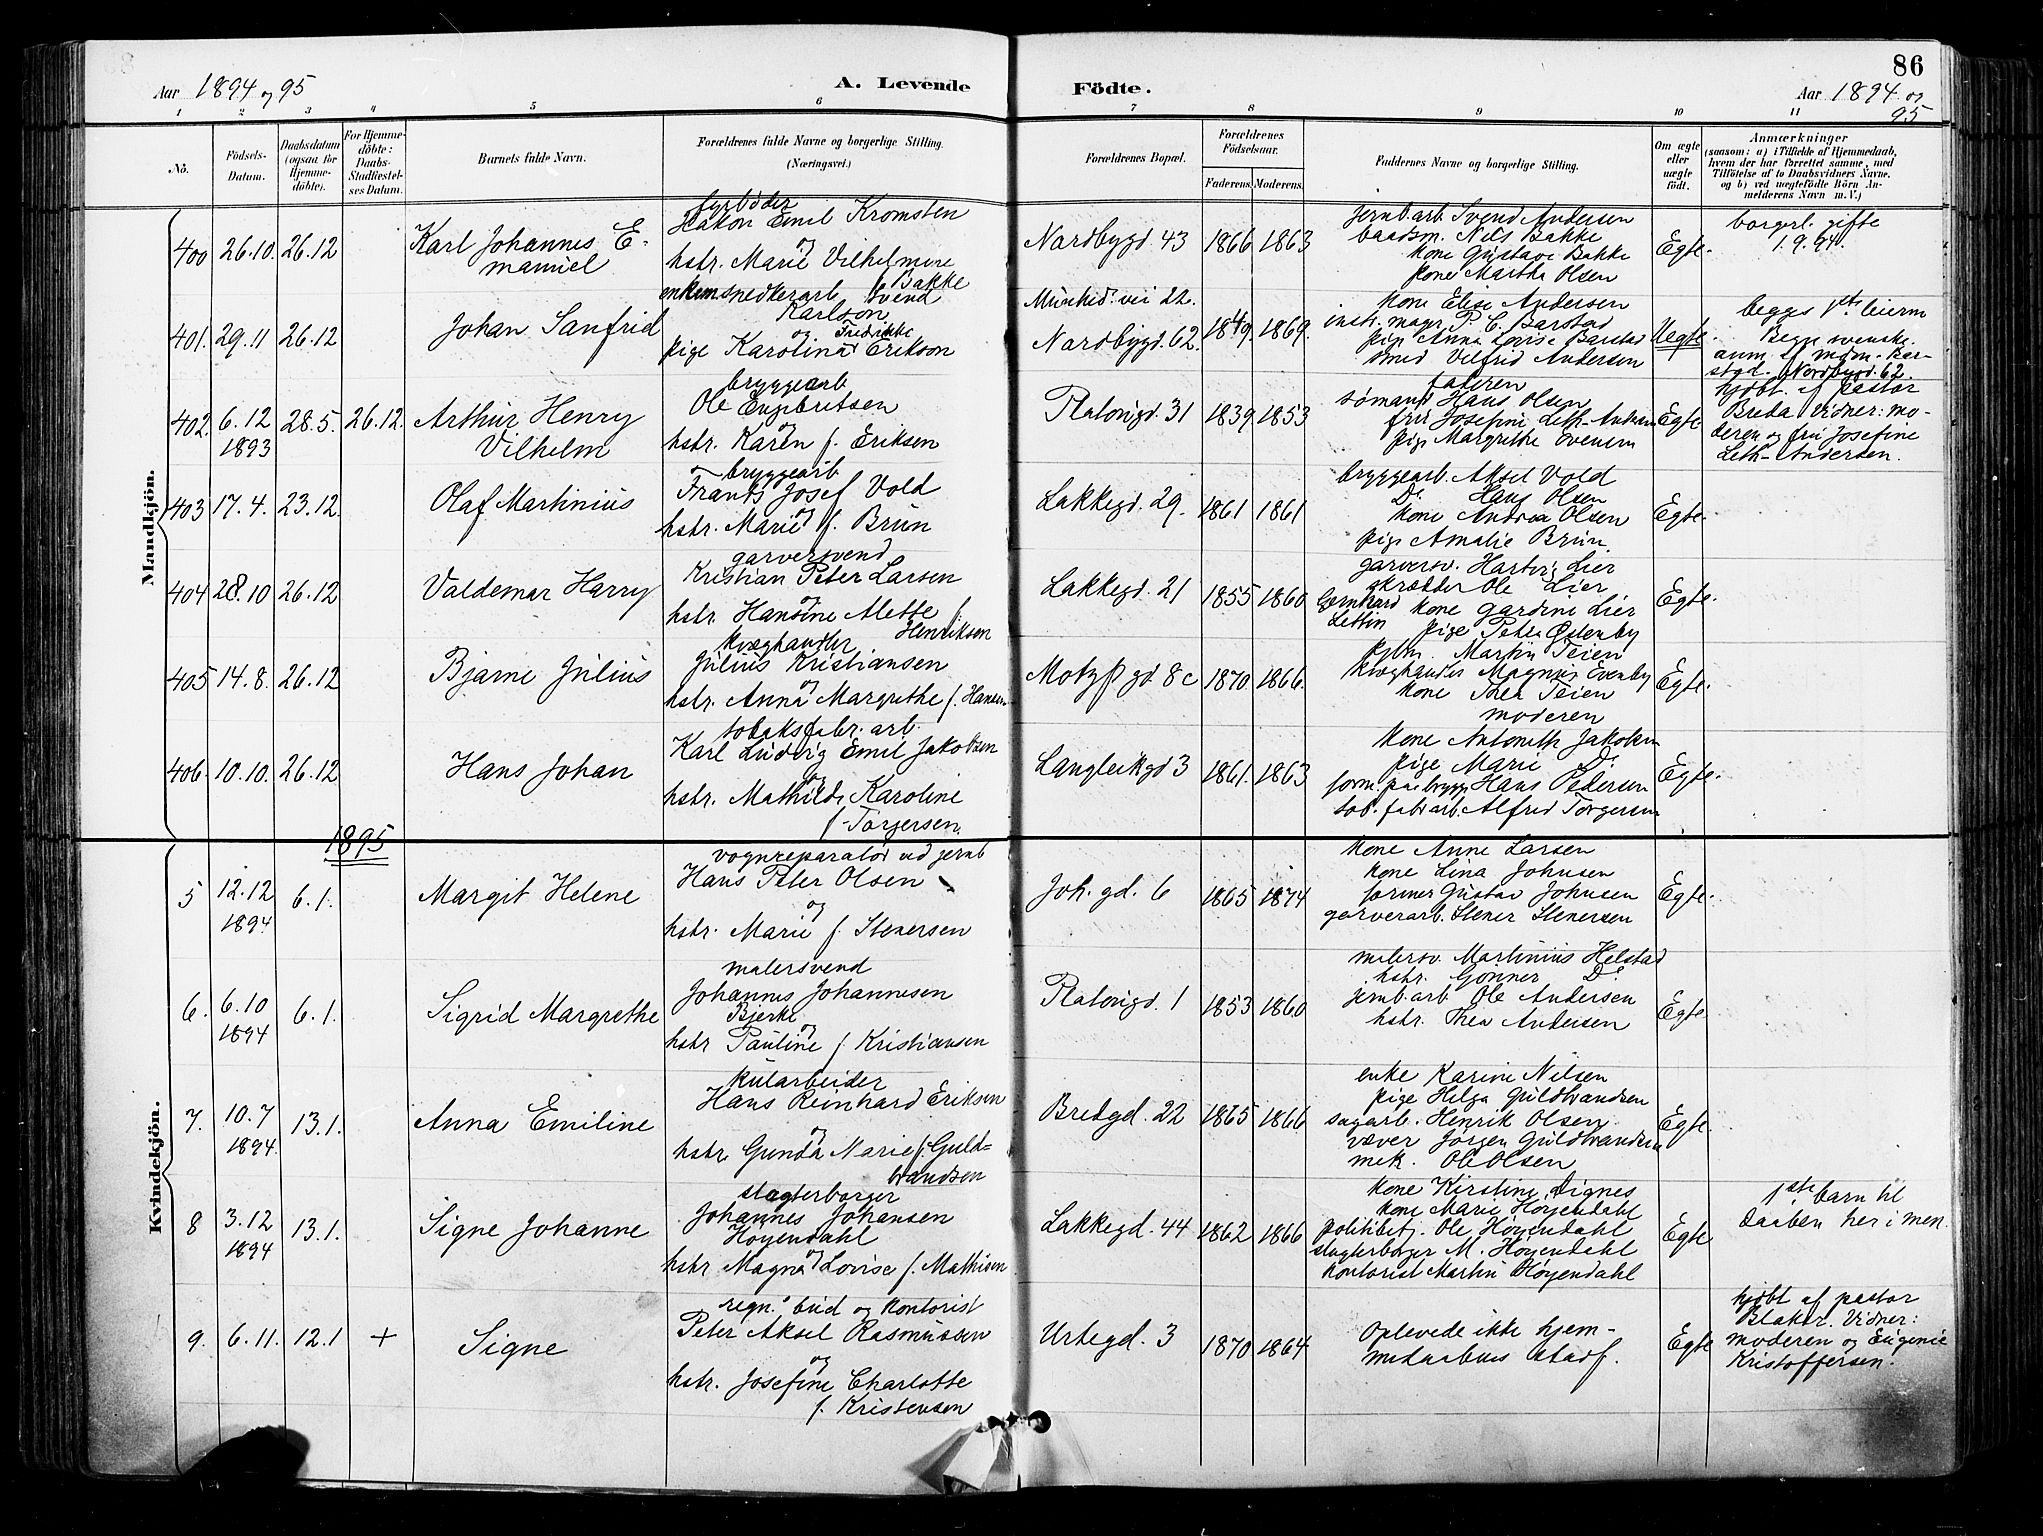 86
Aar 1894 og 95
A. Levende
Födte.
Aar 1894 og
95
1 2 3 4 5 6 7 8 9 10 11
No.
Födsels-
Datum.
Daabsdatum
(ogsaa for
Hjemme-
döbte).
For Hjemme-
döbte:
Daabs-
Stadfæstel-
ses Datum.
Barnets fulde Navn.
Forældrenes fulde Navne og borgerlige Stilling.
(Næringsvei.)
Forældrenes Bopæl.
Forældrenes
Födselsaar.
Faderens. Moderens.
Faddernes Navne og borgerlige Stilling.
Om ægte
eller
uægte
födt.
Anmærkninger
(saasom: a) i Tilfælde af Hjemmedaab,
hvem der har forrettet samme, med
Tilföielse af to Daabsvidners Navne.
og b) ved uegtefödte Börn An-
melderens Navn m. V.)
Mandkjön.
400 26.10. 26.12
Karl Johannes E-
manuel
fyrbøder
Hakon Emil Kromsten
og
hstr. Marie Vilhelmine
Bakke
Nordbygd. 43
1866 1863
jernb.arb Svend Andersen
baadsm. Nils Bakke
kone Gustava Bakke
kone Martha Olsen
Egte.
borgerl. gifte
1.9.94.
401. 29.11 26.12
Johan Sanfrid
enkem snedkerarb Svend
Karlson
og Fredrikke
pige Karolina Erikson
vei 22.
Nordbygd. 62.
1849. 1869.
kone Elise Andersen
instr. magr P. C. Barstad
pige Anna Lovise Barstad
smed Vilfrid Andersen
Uegte.
begges 1ste leierm
Begge svenske.
anm. af mdm. Bar-
stad. Nordbygd. 62.
402. 6.12
1893
28.5. 26.12.
Arthur Henry
Vilhelm
bryggearb
Ole Engebritsen
og
hstr. Karen f. Eriksen
Platousgd. 31
1839 1853
faderen
sømand Hans Olsen
frü Josefine Leth-Andersen
pige Margrethe Svensen
Egte
hjdbt. af pastor
Breda Vidner: mo-
deren og frü Josefine
Leth-Andersen.
403 17.4. 23.12.
Olaf Martinius
bryggearb
Frants Josef Vold
og
hstr. Marie f. Brün
Lakkegd. 29.
1861 1861
bryggearb. Aksel Vold
Do Hans Olsen
kone Andrea Olsen
pige Amalie Brün.
Egte.
404 28.10 26.12
Valdemar Harry
garversvend
Kristian Peter Larsen
og
hstr. Hansine Alette f.
Henriksen
Lakkegd. 21
1855 1860
garversv. Lier
skrædder Ole Lier
kone Gardine Lier
pige Petra Østenby
Egte.
405 14.8. 26.12
Bjarne Julius
kvæghandler
Julius Kristiansen
og
hstr. Anna Margrethe f. Hansen
Motzf gd 8c
1870. 1866.
Martin Teien
kvæghandler Magnus Evenby
kone Thea Teien
moderen
Egte.
406. 10.10. 26.12
Hans Johan
tobaksfabr. arb.
Karl Ludvig Emil Jakobsen
og
hstr. Mathilde Karoline
f. Torgersen.
Langleikgd 3
1861. 1863
kone Antonette Jakobsen
pige Marie Do
form. paa brygg Hans Pedersen
tob. fabr arb. Alfred Torgersen
Egte.
1895
Kvindekjön.
5 12.12
1894
6.1.
Margit Helene
vognreparatør ved jernb
Hans Peter Olsen
og
hstr. Marie f. Stenersen
Joh. gd. 6
1865 1874
kone Anne Larsen
kone Lina Johnsen
former Gustav Johnsen
garverarb. Stener Stenersen
Egte.
6. 6.10
1894
6.1.
Sigrid Margrethe
malersvend
Johannes Johannesen
Bjerke
og
hstr Pauline f. Kristiansen
Platousgd. 1
1853 1860
malersv. Martinius Helstad
hstr. Gonner Do
jernb.arb Ole Andersen
hstr. Thea Andersen
Egte.
7. 10.7
1894.
13.1.
Anna Emiline
kularbeider
Hans Reinhard Eriksen
og
hstr. Gunda Marie f. Guld-
brandsen
Bredgd. 22
1865 1866
enke Karine Nilsen
pige Helga Guldbrandsen
sagarb. Henrik Olsen.
væver Jørgen Guldbrandsen
mek. Ole Olsen
Egte.
8 3.12
1894
13.1.
Signe Johanne
slagterborger
Johannes Johansen
Høyendahl
og
hstr Magna Lovise f. Mathisen
Lakkegd. 44
1862 1866
kone Kirstine Dignes
kone Marie Høyendahl
politibetj. Ole Høyendahl
slagterborger M. Høyendahl
kontorist Martin Høyendahl
Egte
1ste barn til
daaben her i men.
9. 6.11. 12.1 +
Signe
regn. bud og kontorist
Peter Aksel Rasmussen
og
hstr. Josefine Charlotte
f. Kristensen
Urtegd. 3
1870 1864
Oplevede ikke hjem-
medaabens stadf.
Egte
hjdbt af pastor
Blaker. Vidner:
moderen og Eugenie
Kristoffersen.